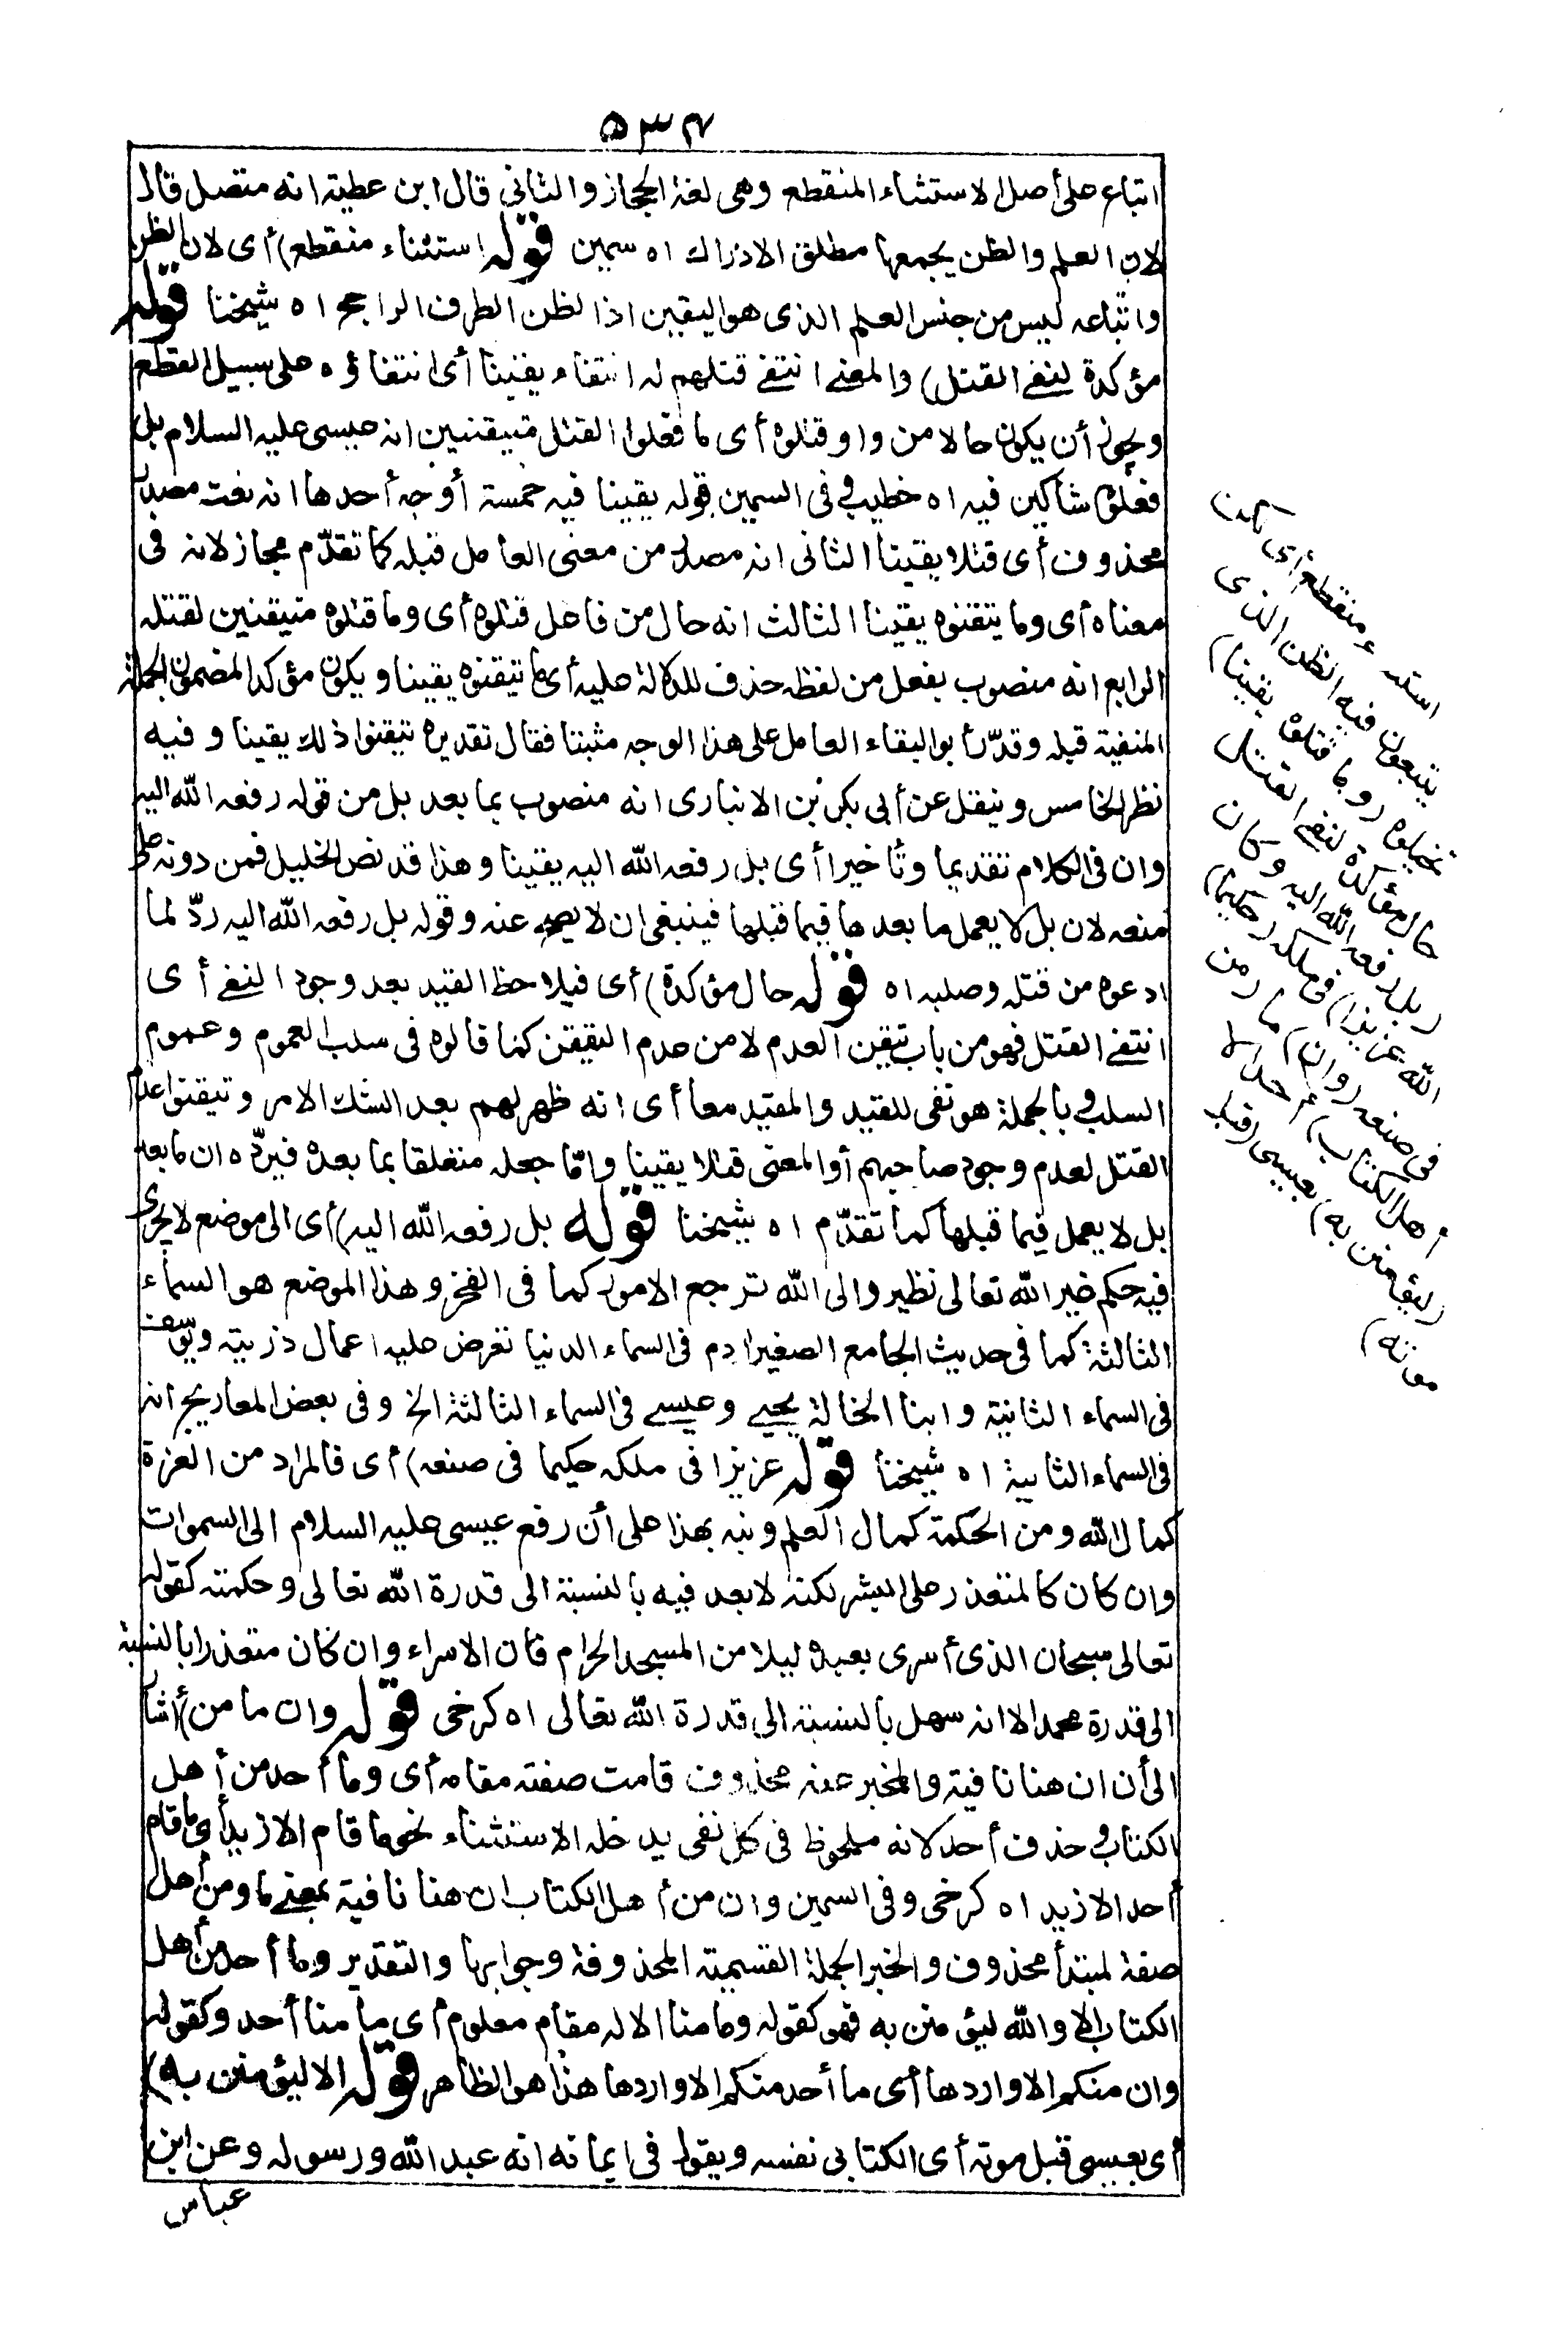 ٥٣٤
اتباع على أصل الاستثناء المنقطع وهى لغة الحجاز والثانى قال ابن عطية انه متصل قال
لان العلم والظن يجمعهما مطلق الادراك اه سمين قوله استثناء منقطع) أى لان الظن
واتباعه ليس من جنس العلم الذى هو اليقين اذ الظن الطرف الراجح اه شيخنا قوله
مؤكدة لنفى القتل) والمعنى انتفى قتلهم له انتفاء يقينا أى انتفاؤه على سبيل القطع
ويجوز أن يكون حالا من واو قتلوه أى ما فعلوا القتل متيقنين انه عيسى عليه السلام بل
فعلوه شاكين فيه اه خطيب وفى السمين قوله يقينا فيه خمسة أوجه أحدها انه نعت مصدر
محذوف أى قتلا يقينا الثانى انه مصدر من معنى العامل قبله كما تقدّم مجازلانه فى
معناه أى وما يتقنوه يقينا الثالث انه حال من فاعل قتلوه أى وما قتلوه متيقنين لقتله
الرابع انه منصوب بفعل من لفظه حذف للدلالة عليه أى ما تيقنوه يقينا ويكون مؤكدا لمضمون الجملة
المنفية قبله وقدّر أبو البقاء العامل على هذا الوجه مثبتا فقال تقديره تيقنوا ذلك يقينا وفيه
نظر الخامس وينقل عن أبى بكر بن الانبارى انه منصوب بما بعد بل من قوله رفعه الله اليه
وان فى الكلام تقديما وتأخيرا أى بل رفعه الله اليه يقينا وهذا قد نص الخليل فمن دونه على
منعه لان بل لا يعمل ما بعدها فيما قبلها فينبغى ان لا يصح عنه وقوله بل رفعه الله اليه ردّ لما
ادعوه من قتله وصلبه اه قوله حال مؤكدة) أى فيلاحظ القيد بعد وجود النفى أى
انتفى القتل فهو من باب تيقن العدم لا من عدم التيقن كما قالوه فى سلب العموم وعموم
السلب وبالجملة هو نفى للقيد والمقيد معا أى انه ظهر لهم بعد الشك الامر وتيقنوا عدم
القتل لعدم وجود صاحبهم أو المعنى قتلا يقينا وامّا جعله متعلقا بما بعده فيردّه ان ما بعد
بل لا يعمل فيما قبلها كما تقدّم اه شيخنا قوله بل رفعه الله اليه) أى الى موضع لا يجرى
فيه حكم غير الله تعالى نظير والى الله ترجع الامور كما فى الفخر وهذا الموضع هو السماء
الثالثة كما فى حديث الجامع الصغير ادم فى السماء الدنيا تعرض عليه اعمال ذريته ويوسف
فى السماء الثانية وابنا الخالة يحيى وعيسى فى السماء الثالثة الخ وفى بعض المعاريج انه
فى السماء الثانية اه شيخنا قوله عزيزا فى ملكه حكيما فى صنعه) أى فالمراد من العزة
كمال الله ومن الحكمة كمال العلم ونبه بهذا على أن رفع عيسى عليه السلام الى السموات
وان كان كالمتعذر على البشر لكنه لا بعد فيه بالنسبة الى قدرة الله تعالى وحكمته كقوله
تعالى سبحان الذى أسرى بعبده ليلا من المسجد الحرام فان الاسراء وان كان متعذرا بالنسبة
الى قدرة محمد الا انه سهل بالنسبة الى قدرة الله تعالى اه كرخى قوله وان ما من) أشار
الى أن ان هنا نافية والمخبر عنه محذوف قامت صفته مقامه أى وما أحد من أهل
الكتاب وحذف أحد لانه ملحوظ فى كل نفى يدخله الاستثناء نحو ما قام الا زيد أى ما قام
أحد الا زيد اه كرخى وفى السمين وان من أهل الكتاب ان هنا نافية بمعنى ما ومن أهل
صفة لمبتدأ محذوف والخبر الجملة القسمية المحذوفة وجوابها والتقدير وما أحد من أهل
الكتاب الا والله ليؤمنن به فهو كقوله وما منا الا له مقام معلوم أى ما منا أحد وكقوله
وان منكم الا واردها أى ما أحد منكم الا واردها هذا هو الظاهر قوله الا ليؤمنن به)
أى بعيسى قبل موته أى الكتابى نفسه ويقول فى ايمانه انه عبد الله ورسوله وعن ابن
عباس
منقطع أى لكن
يتبعون فيه الظن الذى
تخيلوه (وما قتلوه يقينا)
حال مؤكدة لنفى القتل
(بل رفعه الله اليه وكان
الله عزيزا) فى ملكه (حكيما)
فى صنعه (وان) ما (من
أهل الكتاب) أحد (الا
ليؤمنن به) بعيسى (قبل
موته)